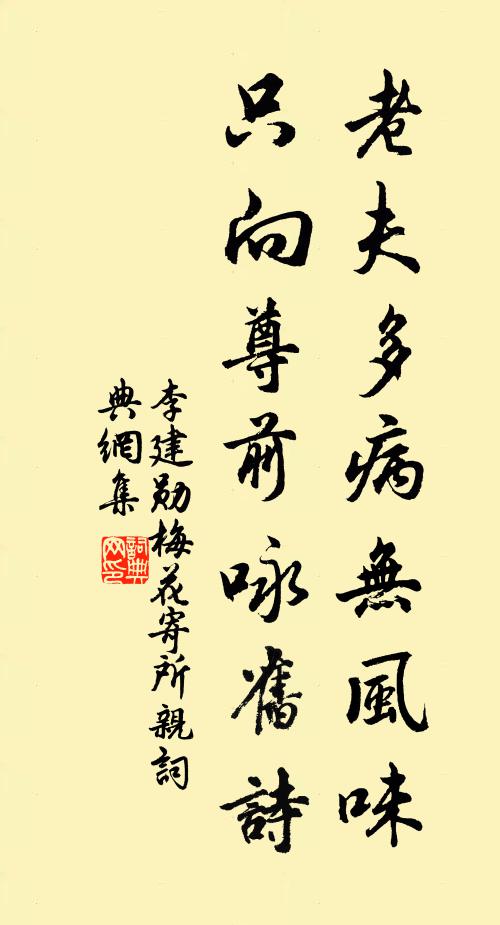 老夫多病無風味
只向尊前咏舊詩
李建勛梅花寄所親詞
典網集
詞典
网印